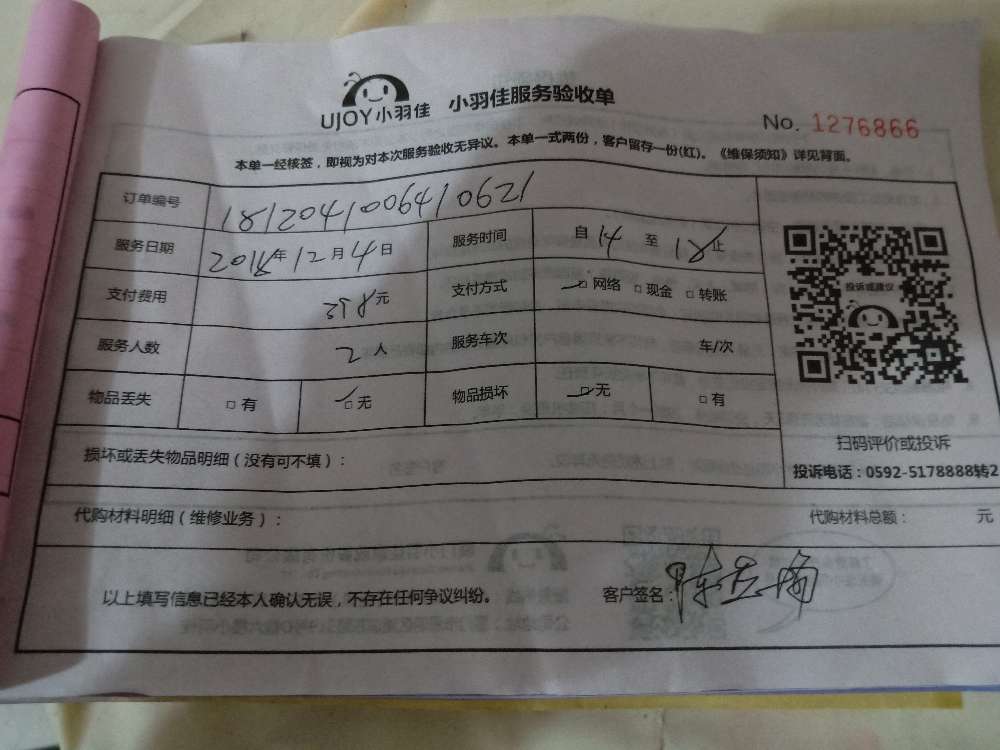 UJOY小羽佳 小羽佳服务验收单
No. 1276866
本单一经核签，即视为对本次服务验收无异议。本单一式两份，客户留存一份(红)。《维保须知》详见背面。
订单编号 1812041006410621
服务日期 2018年12月4日 服务时间 自14至18止
支付费用 398元 支付方式 ☑网络 □现金 □转账
服务人数 2人 服务车次 车/次
物品丢失 □有 ☑无 物品损坏 ☑无 □有
投诉或建议
扫码评价或投诉
投诉电话：0592-5178888转2
损坏或丢失物品明细（没有可不填）：
代购材料明细（维修业务）： 代购材料总额： 元
以上填写信息已经本人确认无误，不存在任何争议纠纷。 客户签名：陈